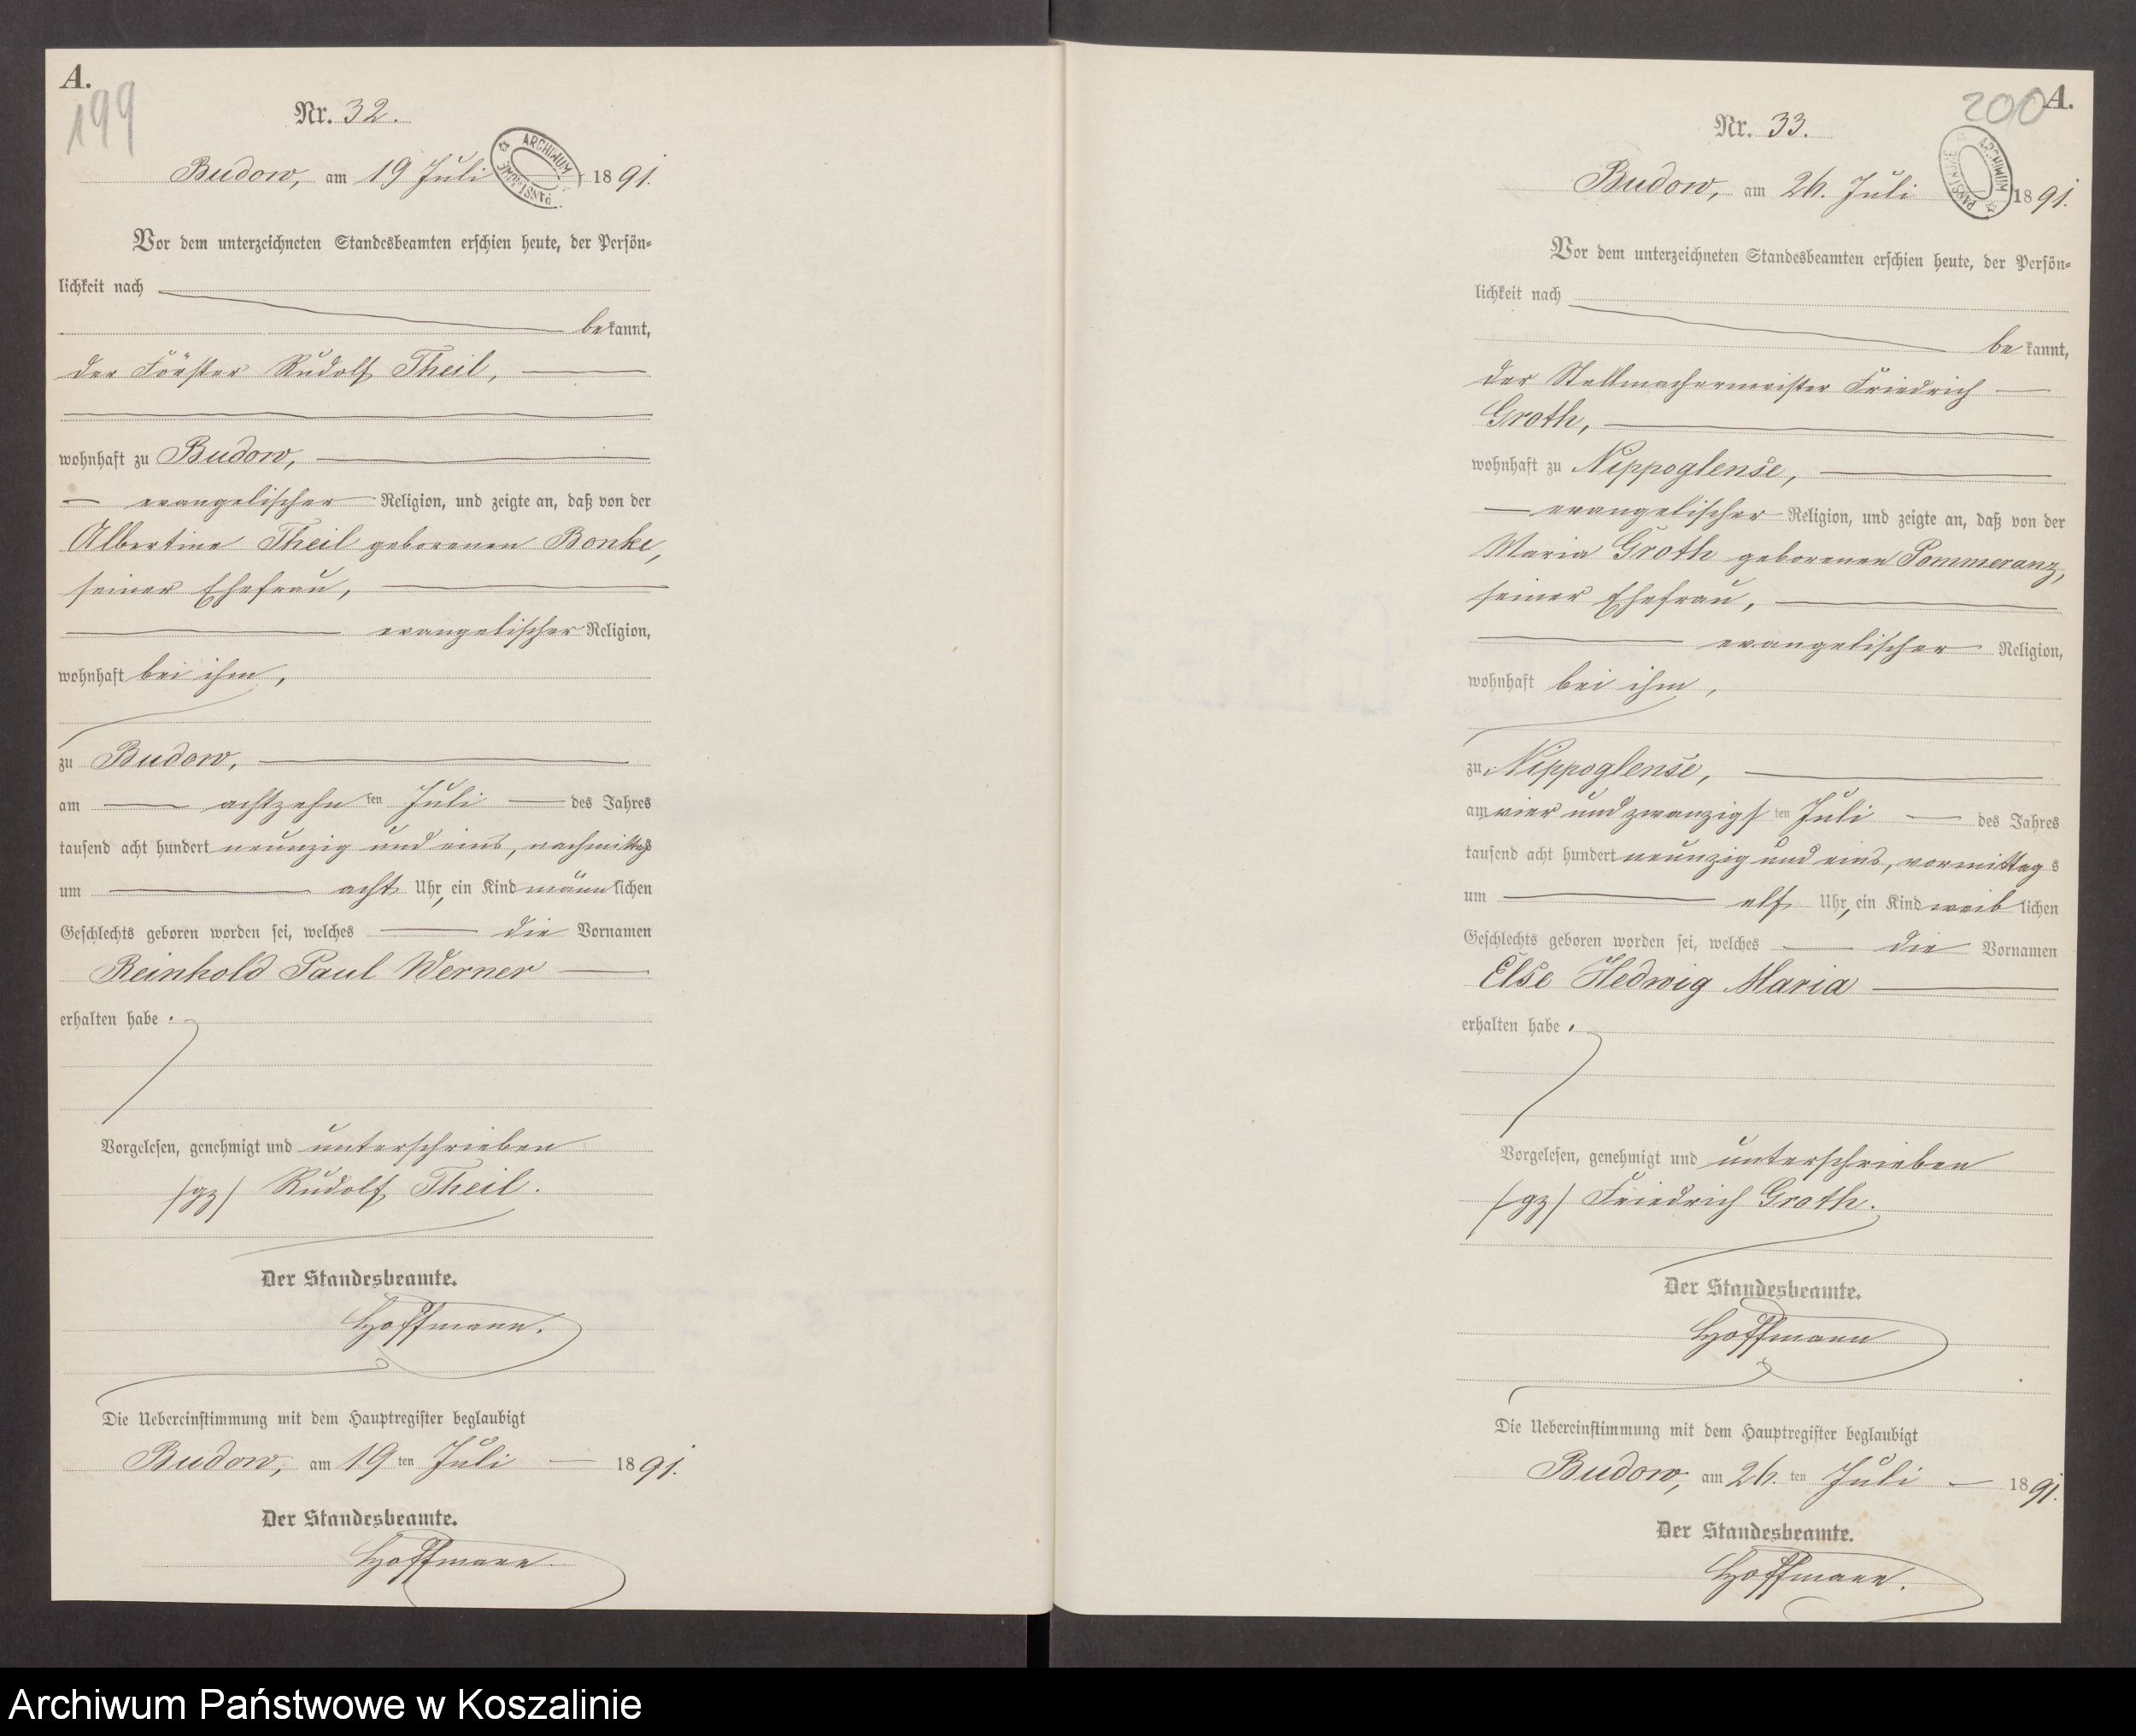 A.
199
Nr. 32.
ARCHIWUM PAŃSTWOWE
Budow, am 19 Juli 1891.
Vor dem unterzeichneten Standesbeamten erschien heute, der Persön=
lichkeit nach
bekannt,
der Förster Rudolf Theil,
wohnhaft zu Budow,
evangelischer Religion, und zeigte an, daß von der
Albertine Theil geborenen Bonke,
seiner Ehefrau,
evangelischer Religion,
wohnhaft bei ihm,
zu Budow,
am achtzehnten Juli des Jahres
tausend acht hundert neunzig und eins, nachmittags
um acht Uhr, ein Kind männlichen
Geschlechts geboren worden sei, welches die Vornamen
Reinhold Paul Werner
erhalten habe.
Vorgelesen, genehmigt und unterschrieben
/gz/ Rudolf Theil.
Der Standesbeamte.
Hoffmann.
Die Uebereinstimmung mit dem Hauptregister beglaubigt
Budow, am 19ten Juli 1891.
Der Standesbeamte.
Hoffmann.
200
A.
Nr. 33.
ARCHIWUM PAŃSTWOWE
Budow, am 26. Juli 1891.
Vor dem unterzeichneten Standesbeamten erschien heute, der Persön=
lichkeit nach
bekannt,
der Stellmachermeister Friedrich
Groth,
wohnhaft zu Nippoglense,
evangelischer Religion, und zeigte an, daß von der
Maria Groth geborenen Pommeranz,
seiner Ehefrau,
evangelischer Religion,
wohnhaft bei ihm,
zu Nippoglense,
am vier und zwanzigsten Juli des Jahres
tausend acht hundert neunzig und eins, vormittags
um elf Uhr, ein Kind weiblichen
Geschlechts geboren worden sei, welches die Vornamen
Else Hedwig Maria
erhalten habe.
Vorgelesen, genehmigt und unterschrieben
/gz/ Friedrich Groth.
Der Standesbeamte.
Hoffmann
Die Uebereinstimmung mit dem Hauptregister beglaubigt
Budow, am 26. ten Juli 1891.
Der Standesbeamte.
Hoffmann.
Archiwum Państwowe w Koszalinie